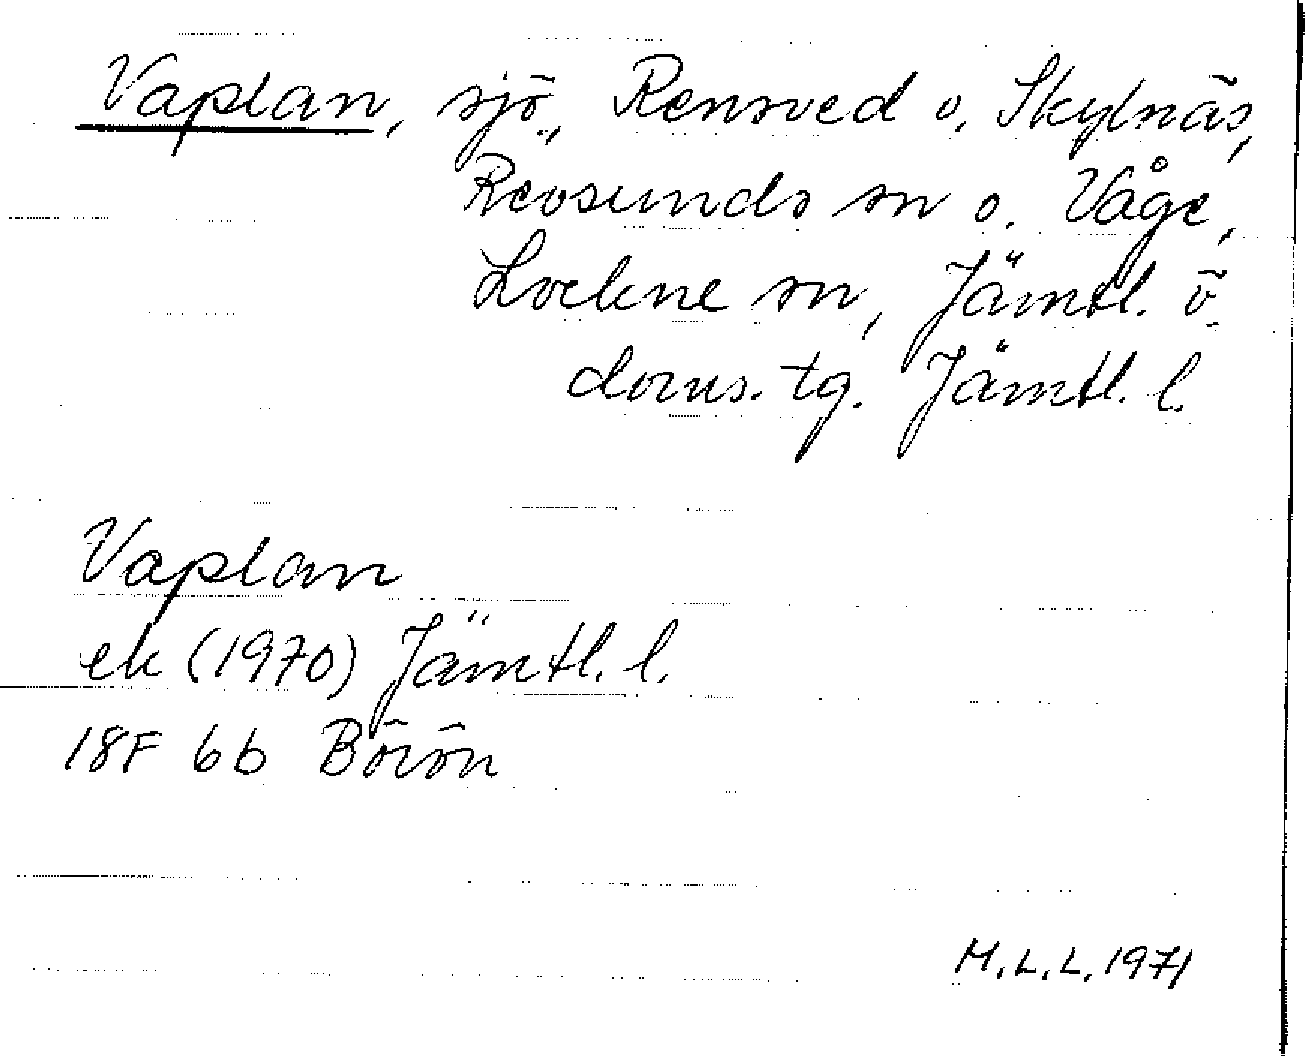 Vaplan, sjö, Rensved o. Skylnäs,
Revsunds sn o. Våge,
Lockne sn, Jämtl. ö.
doms. tg. Jämtl. l.
Vaplan
ek (1970) Jämtl. l.
18F 6b Börön
M.L.L. 1971